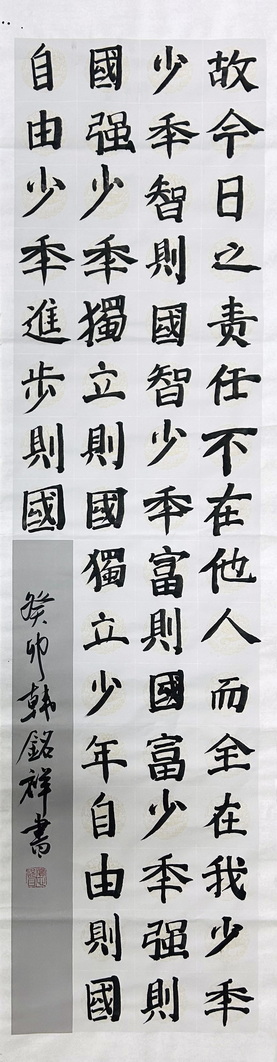 故今日之责任不在他人而全在我少秊
少秊智則國智少秊富則國富少秊强則
國强少秊獨立則國獨立少年自由則國
自由少秊進步則國
癸卯韩銘祥書